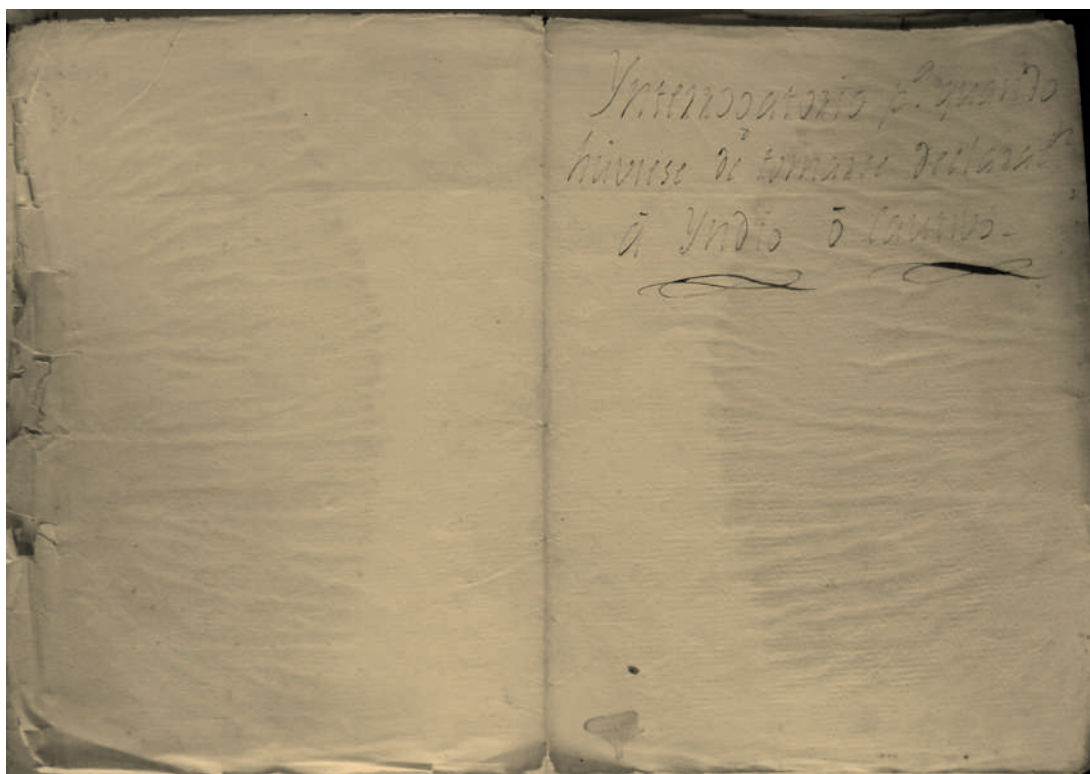 Ynterrogatorio p.ª quando
huviese de tomarse declaraz.ⁿ
á Yndio ó Cautivo.